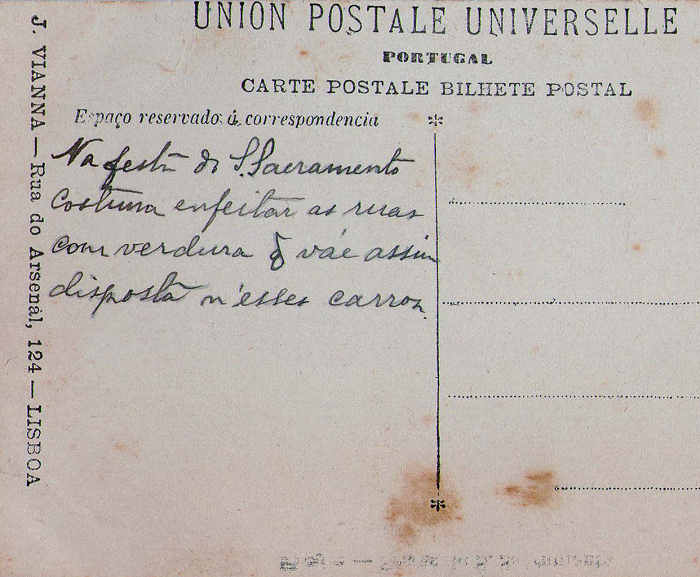 UNION POSTALE UNIVERSELLE
PORTUGAL
CARTE POSTALE BILHETE POSTAL
Espaço reservado á correspondencia
Na festa do S. Sacramento
costuma enfeitar as ruas
com verdura q vae assim
disposta n'esses carros.
J. VIANNA — Rua do Arsenál, 124 — LISBOA